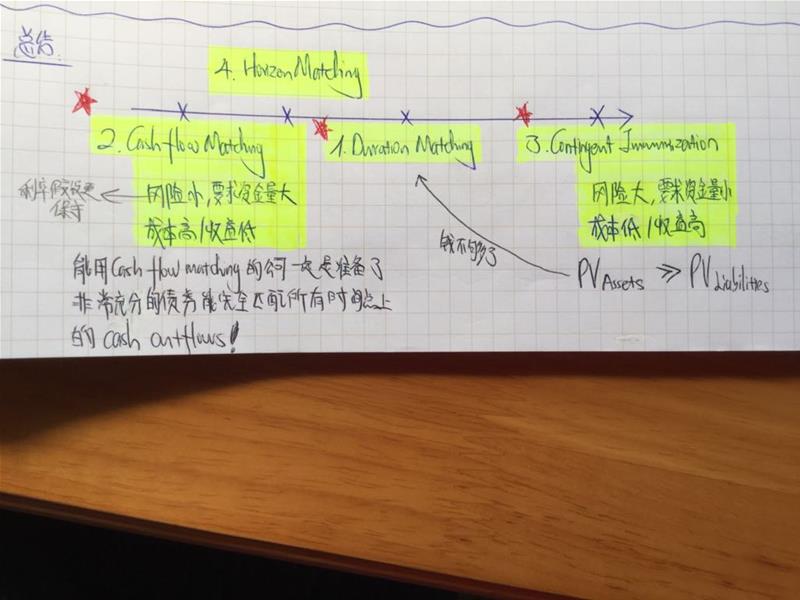 总结
4. Horizon Matching
2. Cash flow Matching
1. Duration Matching
3. Contingent Immunization
利率假设更
保守
风险小,要求资金量大
成本高/收益低
风险大,要求资金量小
成本低/收益高
钱不够了
PV Assets ≫ PV Liabilities
能用Cash flow matching的公司一定是准备了
非常充分的债券能完全匹配所有时间点上
的 cash outflows!